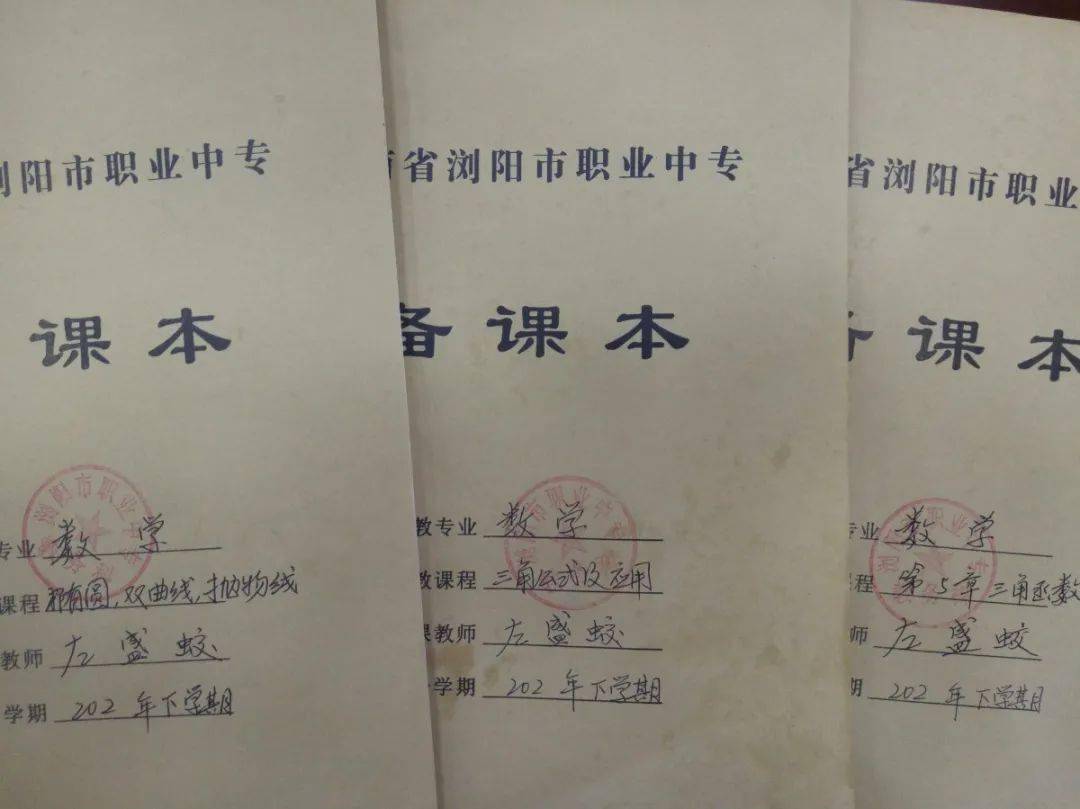 浏阳市职业中专
课本
专业 数学
课程 椭圆,双曲线,抛物线
教师 左盛蛟
学期 202 年下学期
省浏阳市职业中专
备课本
教专业 数学
教课程 三角公式及应用
教师 左盛蛟
学期 202 年下学期
省浏阳市职业
课本
业 数学
程 第5章三角函数
师 左盛蛟
期 202 年下学期